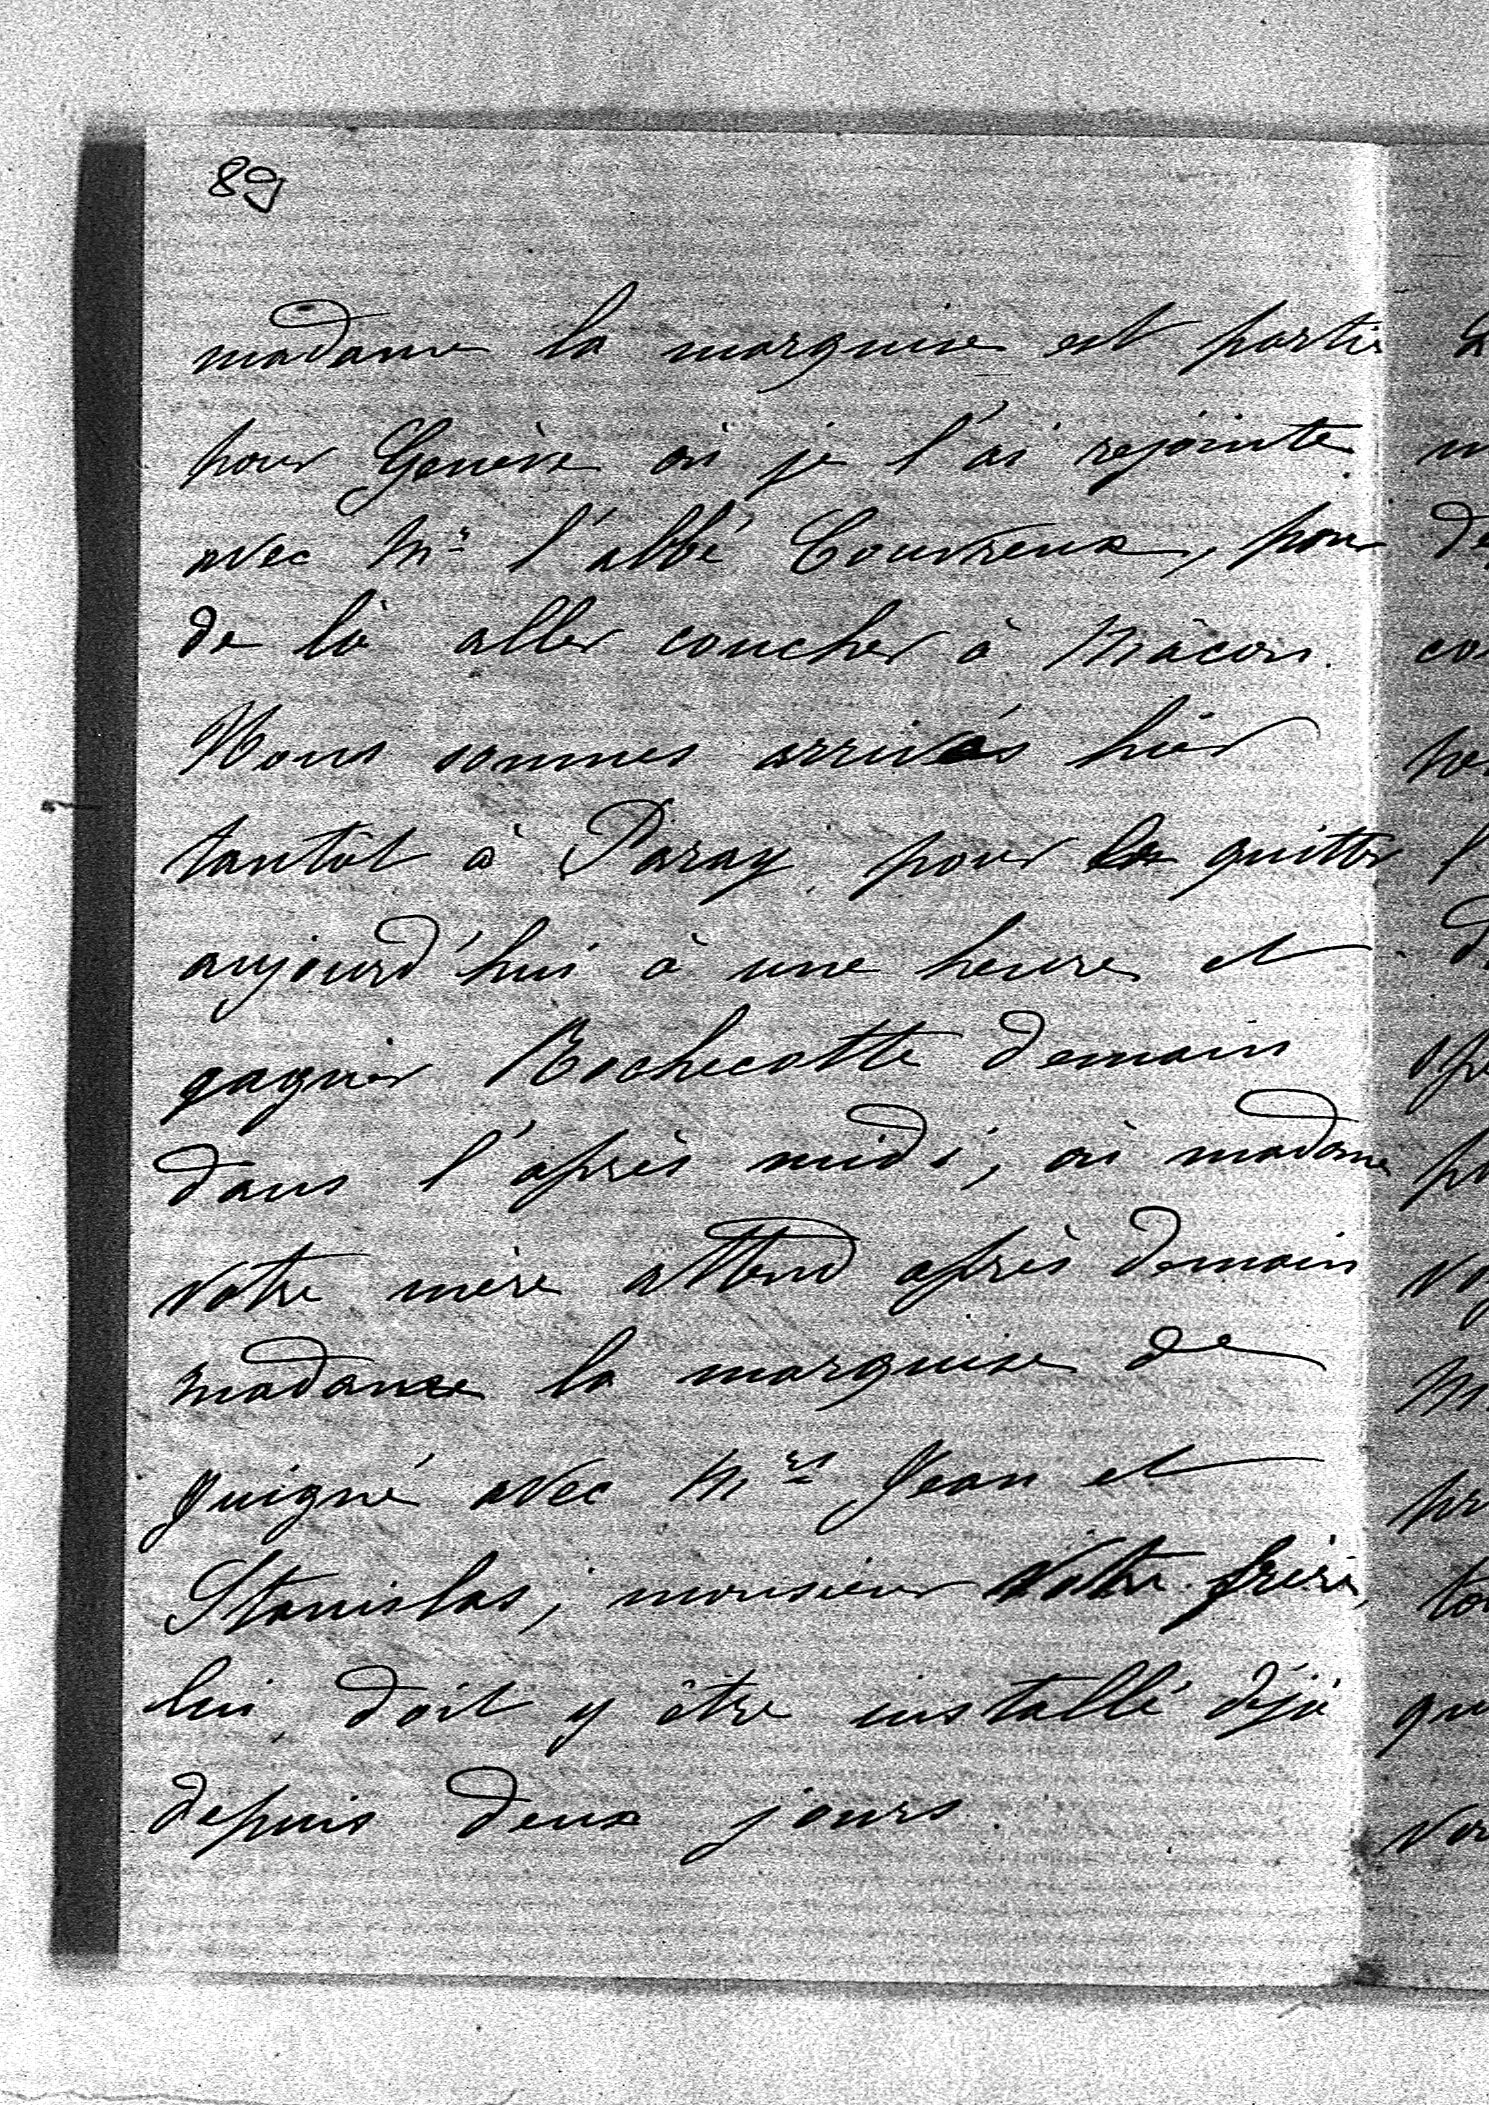 89
madame la marquise est partie
pour Genève où je l'ai rejointe
avec Mr l'abbé Couvreux, pour
de là aller coucher à Mâcon.
Nous sommes arrivés hier
tantôt à Paray, pour le quitter
aujourd'hui à une heure et
gagner Rochecotte demain
dans l'après midi, où madame
votre mère attend après demain
madame la marquise de
Juigné avec Mrs Jean et
Stanislas; monsieur votre frère,
lui, doit y être installé déjà
depuis deux jours.